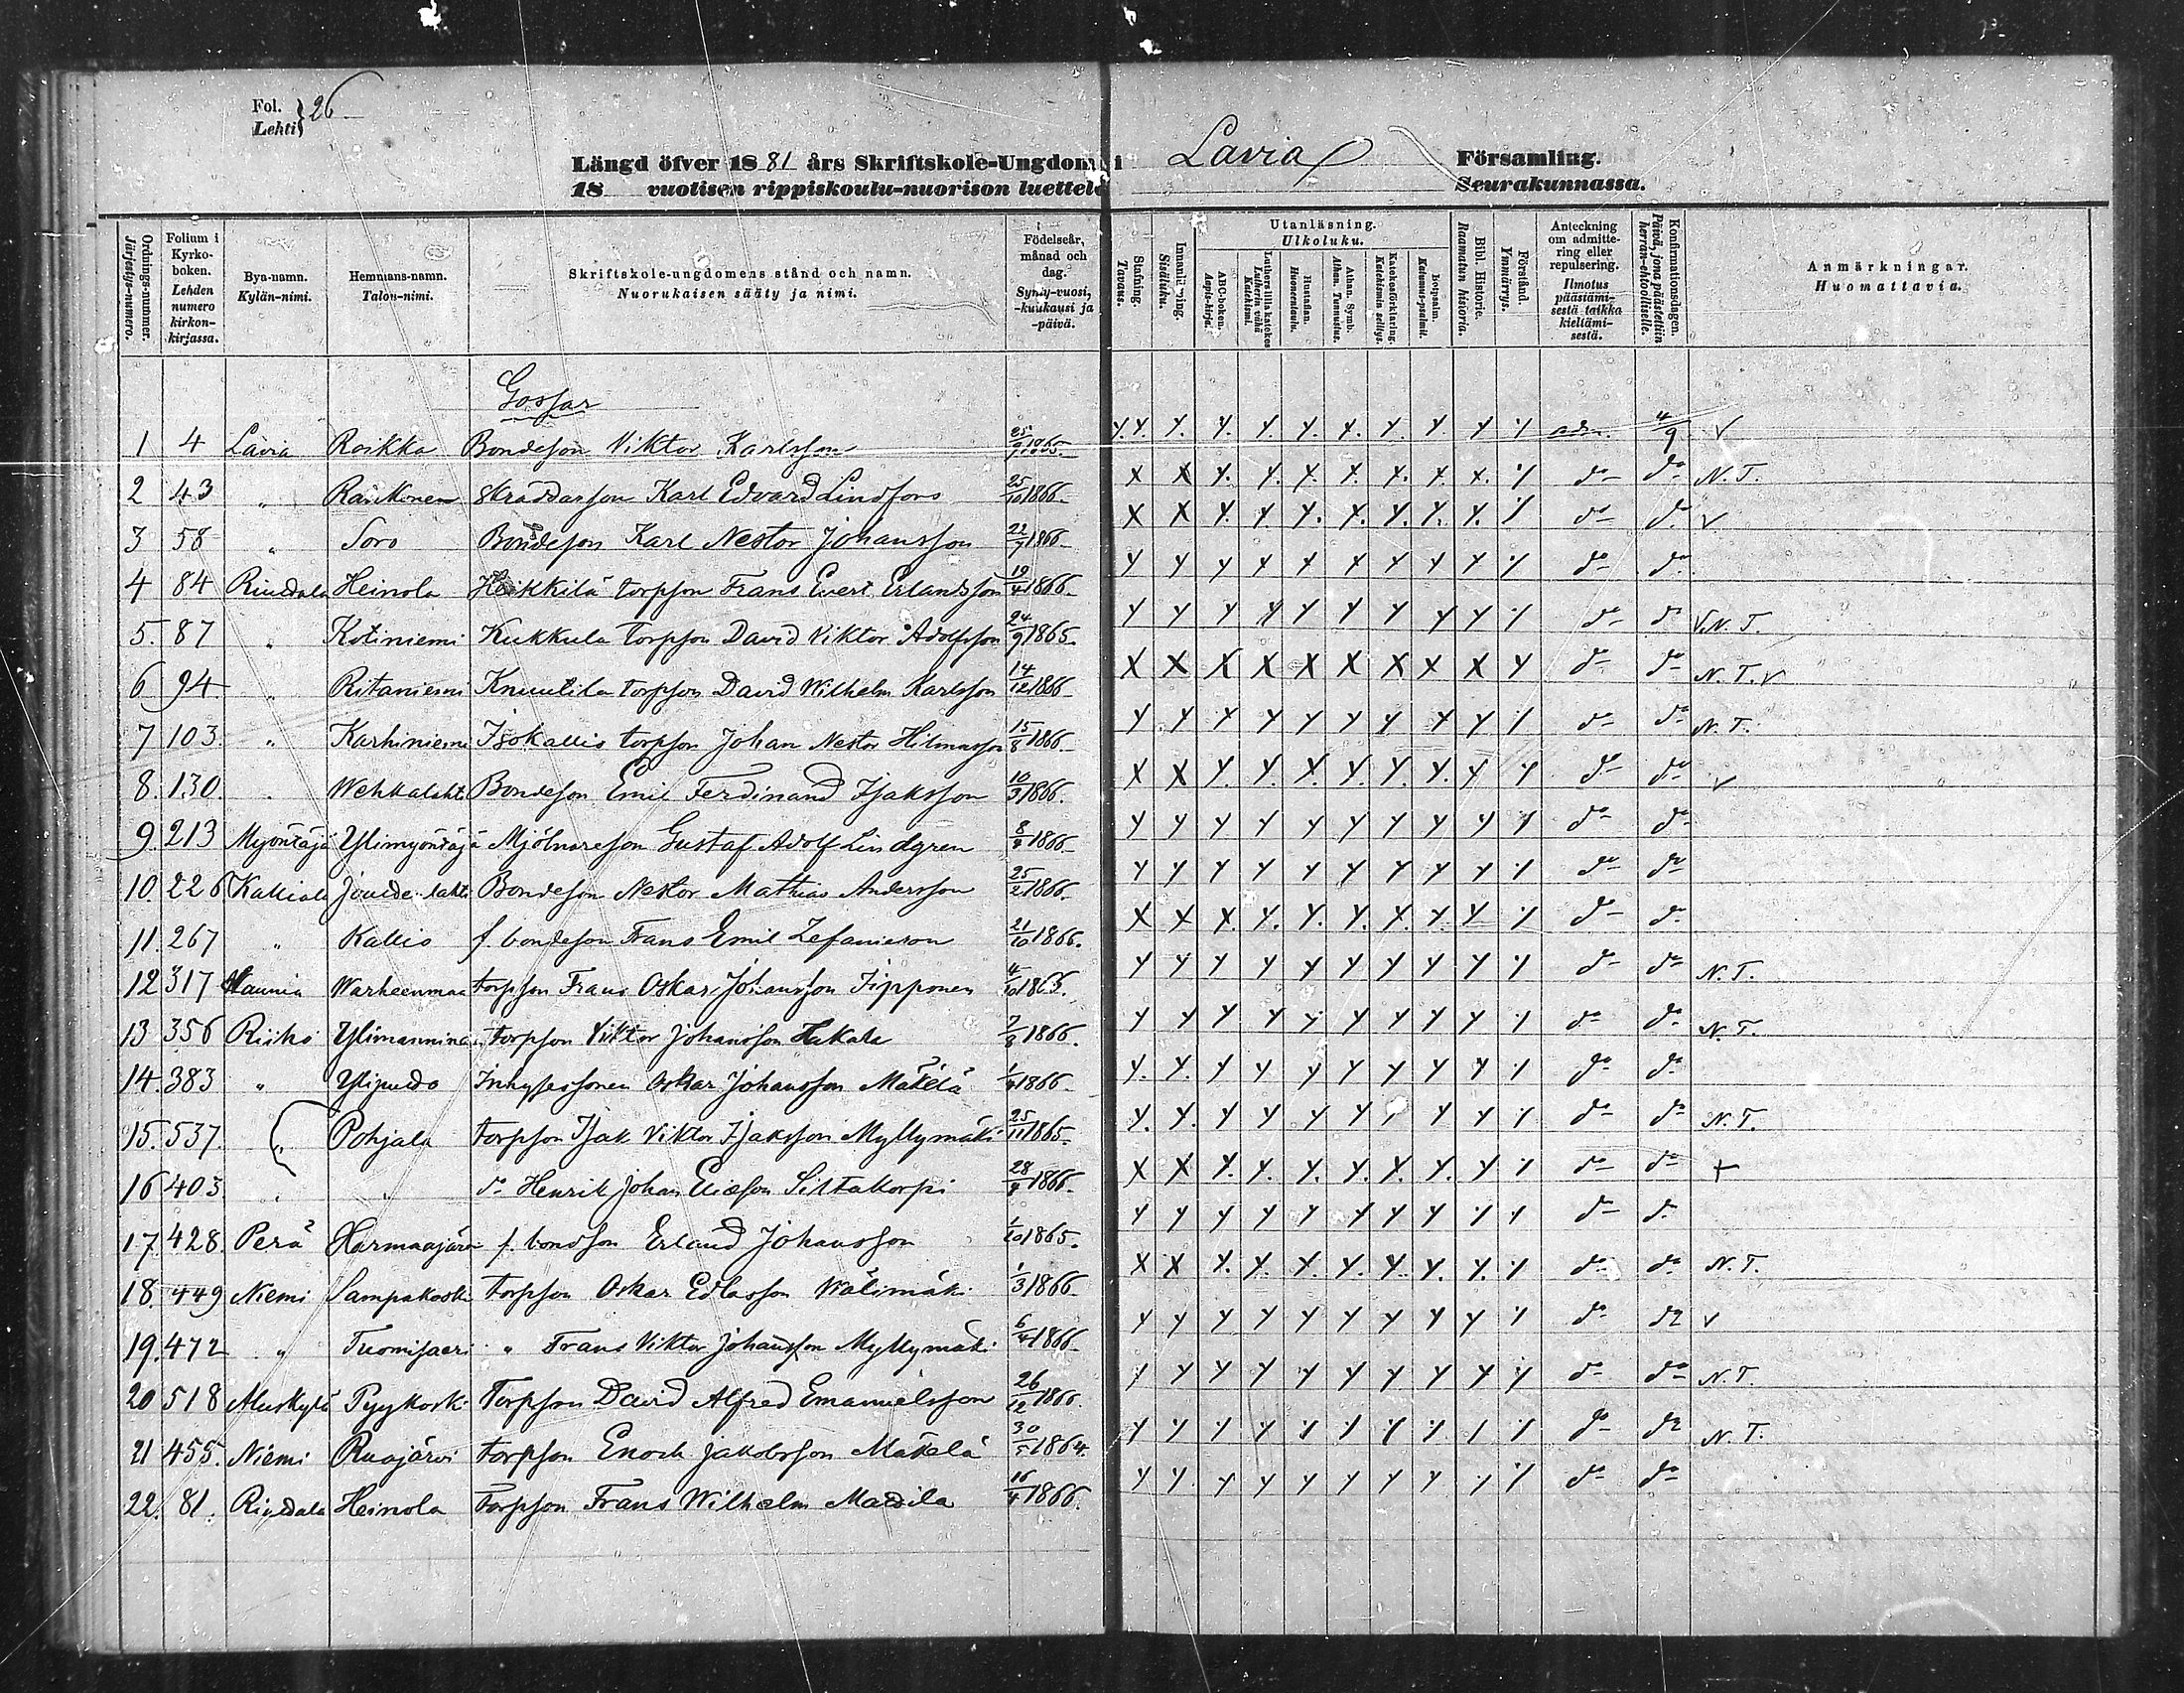 Fol. Lehti } 26
Längd öfver 1881 års Skriftskole-Ungdom i Lavia Församling.
18 vuotisen rippiskoulu-nuorison luettelo Seurakunnassa.
Ordnings-nummer. Järjestys-numero.
Folium i Kyrko-boken. Lehden numero kirkon-kirjassa.
Bya-namn. Kylän-nimi.
Hemmans-namn. Talon-nimi.
Skriftskole-ungdomens stånd och namn. Nuorukaisen sääty ja nimi.
Födelseår, månad och dag. Synty-vuosi, -kuukausi ja -päivä.
Stafning. Tavaus.
Innanläsning. Sisäluku.
Utanläsning. Ulkoluku.
ABC-boken. Aapis-kirja.
Luthers lilla katekes Lutherin vähä Katekismi.
Hustaflan. Huoneentaulu.
Athan. Symb. Athan. Tunnustus.
Katekesförklaring. Katekismin selitys.
Botpsalm. Katumus-psalmit.
Bibl. Historie. Raamatun historia.
Förstånd. Ymmärrys.
Anteckning om admittering eller repulsering. Ilmotus pääsiämisestä taikka kieltämisestä.
Konfirmationsdagen. Päivä, jona päästettiin herrän-ehtoolliselle.
Anmärkningar. Huomattavia.
Gossar
1 4 Lavia Roikka Bondeson Viktor Karlsson 1865 y. y. y. y. y. y. y. y. y y y adm. 4/9 v
2 43 " Raikonen Skräddarson Karl Edvard Lindfors 25/10 1866 x x y. y. y. y. y. y. x. y do do N. T.
3 58 " Soro Bondeson Karl Nestor Johansson 22/7 1866 x x y. y y. y. y. y. y. y do do v
4 84 Riuddala Heinola Heikkilä torpson Frans Evert Erlandsson 19/4 1866 y y y y y y y y y y do do
5. 87 " Kotiniemi Kukkula torpson David Viktor Adolfsson 24/9 1865. y y y y y y y y y y do do V. N. T.
6 94 " Ritaniemi Knuutila torpson David Wilhelm Karlsson 14/12 1866 x x x x x x x x x y do do N. T. v
7 103 " Karhiniemi Isokallio torpson Johan Nestor Hilmarsson 15/8 1866 y y y y y y y y y y do do N. T.
8. 130 " Wehkalahti Bondeson Emil Ferdinand Isaksson 10/3 1866. x x y. y. x y. y. y. y y do do v
9. 213 Myöntäjä Ylimyöntäjä Mjölnareson Gustaf Adolf Lindgren 1866 y y y y y y y y y y do do
10. 226 Kalliala Jouddelahti Bondeson Nestor Mathias Andersson 25/2 1866 y y y y y y y y y y do do
11. 267 " Kallio f. bondeson Frans Emil Zefanieson 21/10 1866. x x x. y. y. y. y. y. y y do do
12 317 Haunia Warheenmaa torpson Frans Oskar Johansson 4/10 1863. y y y y y y y y y y do do N. T.
13 356 Riiho Ylimannina torpson Viktor Johansson Hakala 7/8 1866. y y y y y y y y y y do do N. T.
14. 383 " Inhysessonen Oskar Johansson Mäkelä 1866 y. y. y y y y y y y y do do
15. 537. " Pohjala torpson Isak Viktor Isaksson Myllymäki 25/11 1865. y. y. y y y y y y y y do do N. T.
16 403 " " do Henrik Johan Eliasson Siltakorpi 1866 x x y. y. y. y. y. y. y y do do +
17. 428. Perä Harmaajärvi f. bondson Erland Johansson 1/10 1865. y y y y y y y y y y do do
18. 449 Niemi Sampakoski torpson Oskar Edlasson Wälimäki 1/3 1866 x x y. y. y. y. y. y. y. y do do N. T.
19. 472 " Tuomisaari " Frans Viktor Johansson Myllymäki 6/4 1866 y y y y y y y y y y do do v
20 518 Muskylä Pyykoski Torpson David Alfred Emanuelsson 26/12 1866. y y y y y y y y y y do do N. T.
21 455. Niemi Ruojärvi torpson Enoch Jakobsson Mäkelä 30/5 1864. y y y y y y y y y y do do N. T.
22. 81. Riuddala Heinola Torpson Frans Wilhelm Mattila 16/4 1866. y y y y y y y y y y do do